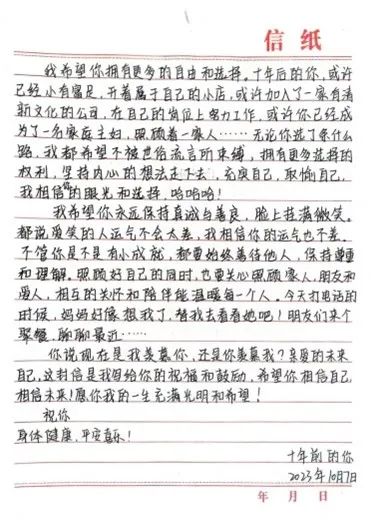 信纸
我希望你拥有更多的自由和选择。十年后的你，或许
已经小有留足，开着属于自己的小店，或许加入了一家有清
新文化的公司，在自己的岗位上努力工作，或许你已经成
为了一名家庭主妇，照顾着一家人……无论你选了条什么
路，我都希望不被世俗流言所束缚，拥有更多选择的
权利，坚持内心的想法走下去，充实自己，取愉自己，
我相信你的眼光和选择，哈哈哈！
我希望你永远保持真诚与善良，脸上挂满微笑。
都说爱笑的人运气不会太差，我相信你的运气也不差。
不管你是不是有小成就，都要始终善待他人，保持尊重
和理解。照顾好自己的同时，也要关心照顾家人，朋友和
爱人，相互的关怀和陪伴能温暖每一个人。今天打电话的
时候，妈妈好像想我了，替我去看看她吧！朋友们来个
聚餐，聊聊最近……
你说现在是我羡慕你，还是你羡慕我？亲爱的未来
自己，这封信是我留给你的祝福和鼓励，希望你相信自己
相信未来！愿你我的一生充满光明和希望！
祝你
身体健康，平安喜乐！
十年前的你
2023年10月7日
年 月 日